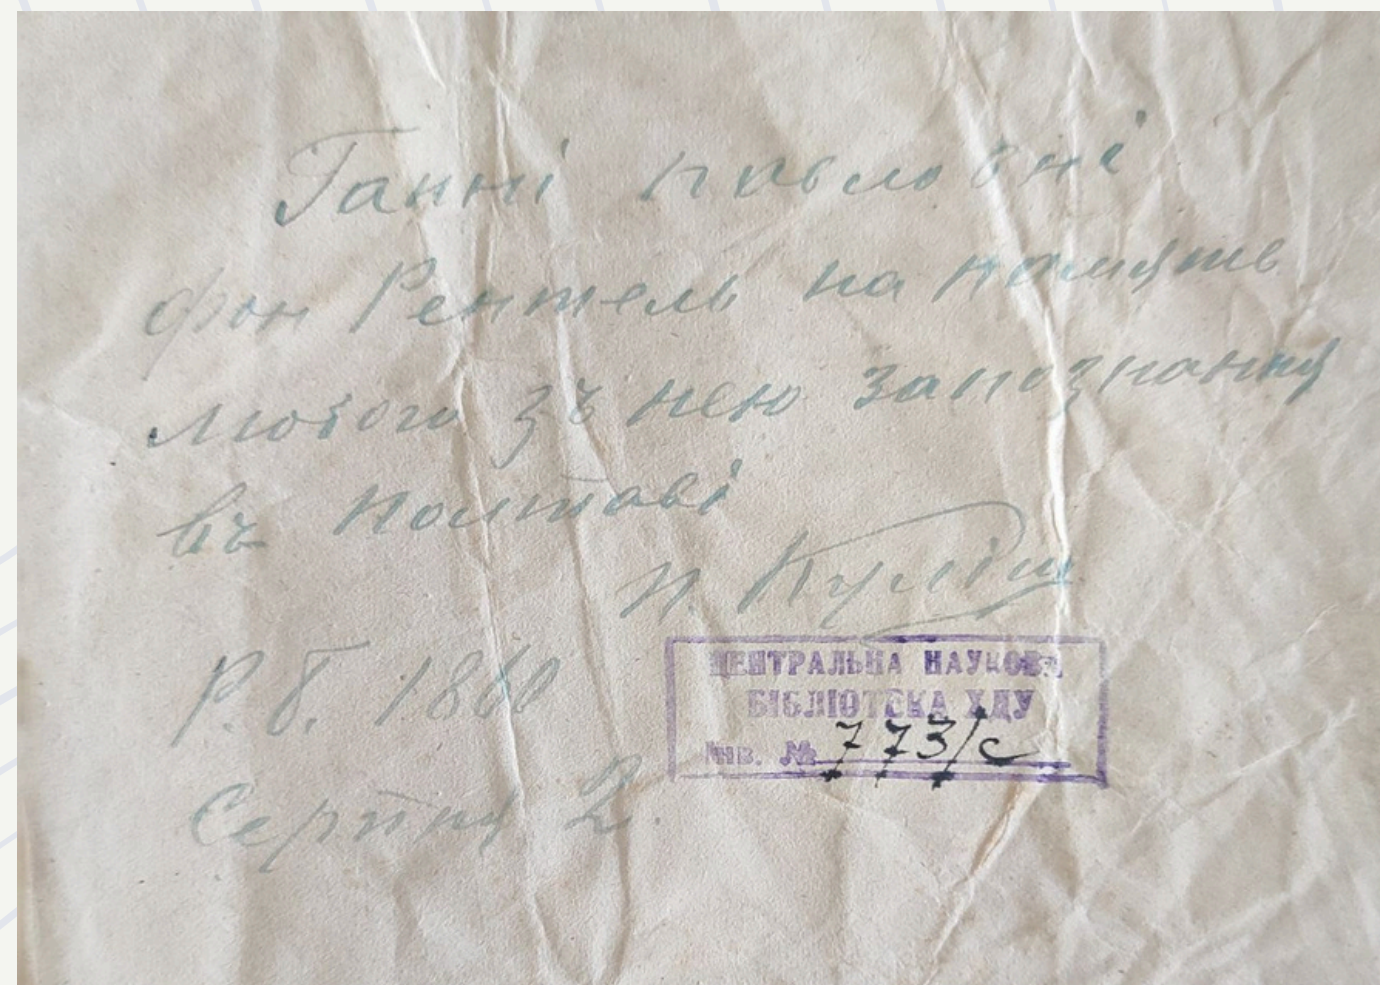 Ганні Павловні
фон Рентель на память
любого зъ нею запознання
въ Полтаві
П. Куліш
Р. Б. 1860
Серпня 2.
ЦЕНТРАЛЬНА НАУКОВА
БІБЛІОТЕКА ХДУ
Інв. № 773/с